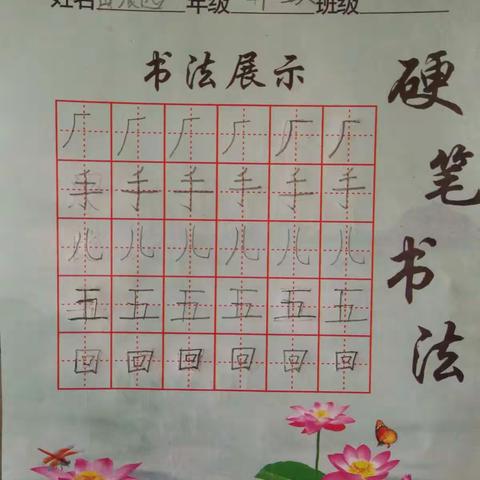 姓名 年级 班级
书法展示
厂厂厂厂厂厂
手手手手手手
儿儿儿儿儿儿
五五五五五五
回回回回回回
硬笔书法